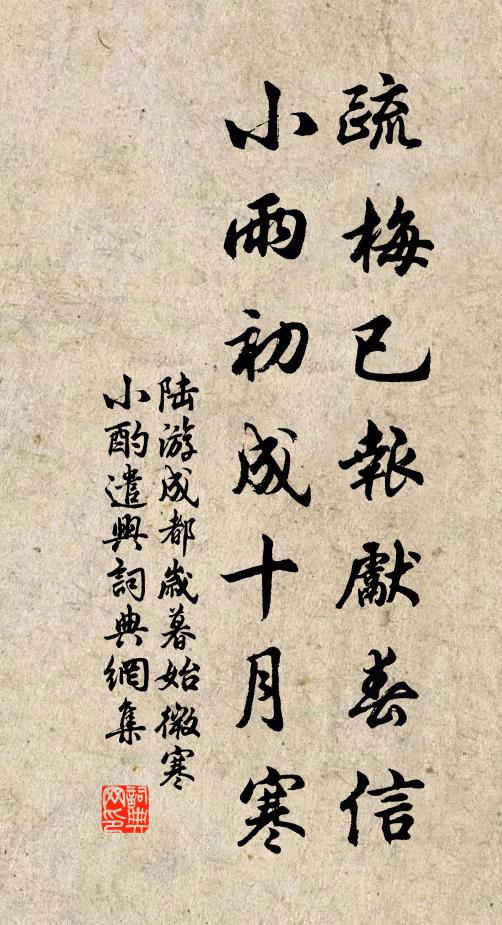 疏梅已報獻春信
小雨初成十月寒
陆游成都歲暮始微寒
小酌遣興詞典網集
詞典
网印